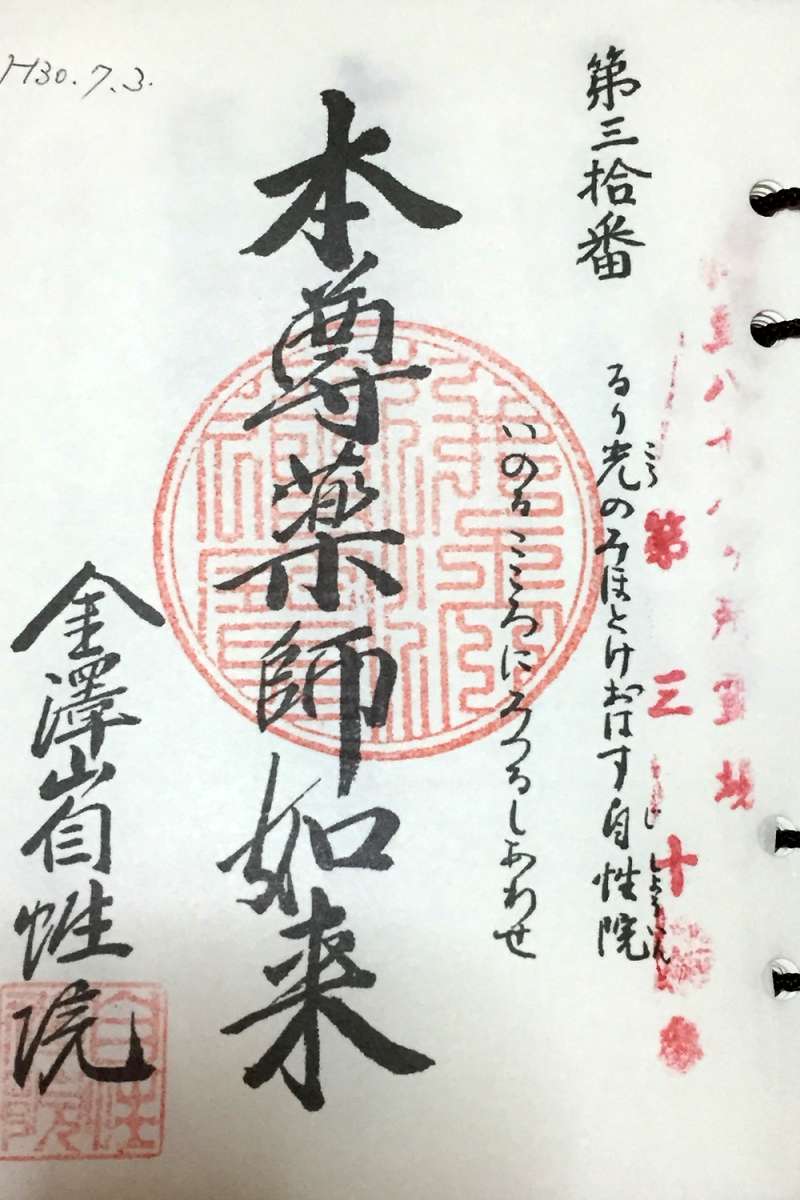 H30.7.3.
第三拾番
るり光のみほとけおはす自性院
こう
じしょういん
いのるこころにみつるしあわせ
本尊薬師如来
金澤山自性院
第三十番